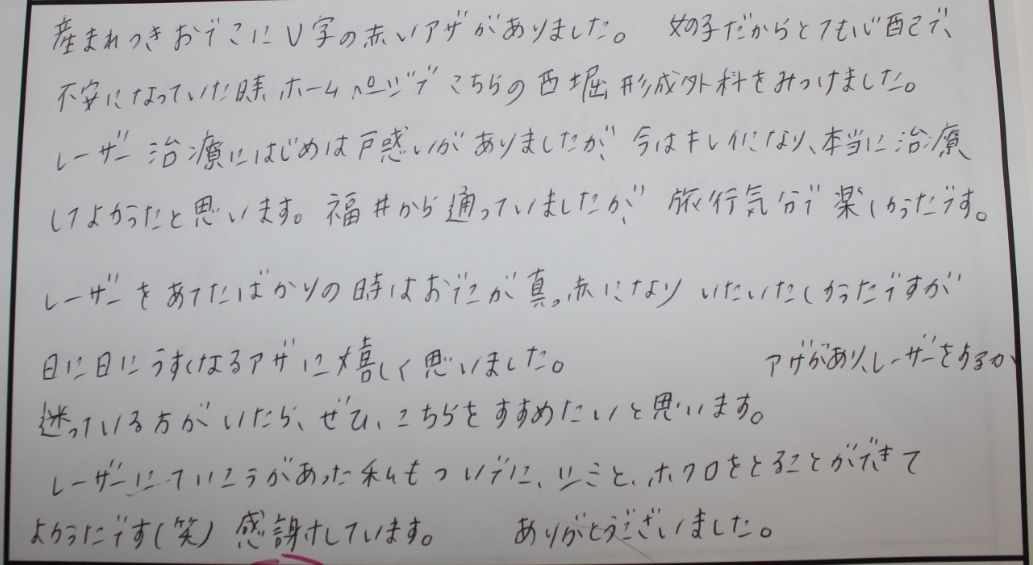 産まれつきおでこにV字の赤いアザがありました。 女の子だからとても心配で、
不安になっていた時、ホームページでこちらの西堀形成外科をみつけました。
レーザー治療にはじめは戸惑いがありましたが、今はキレイになり、本当に治療
してよかったと思います。福井から通っていましたが、旅行気分で楽しかったです。
レーザーをあてたばかりの時はおでこが真っ赤になりいたいたしかったですが
日に日にうすくなるアザに嬉しく思いました。 アザがあり、レーザーをするか
迷っている方がいたら、ぜひ、こちらをすすめたいと思います。
レーザーにていこうがあった私もついでに、シミと、ホクロをとることができて
よかったです(笑) 感謝しています。 ありがとうございました。